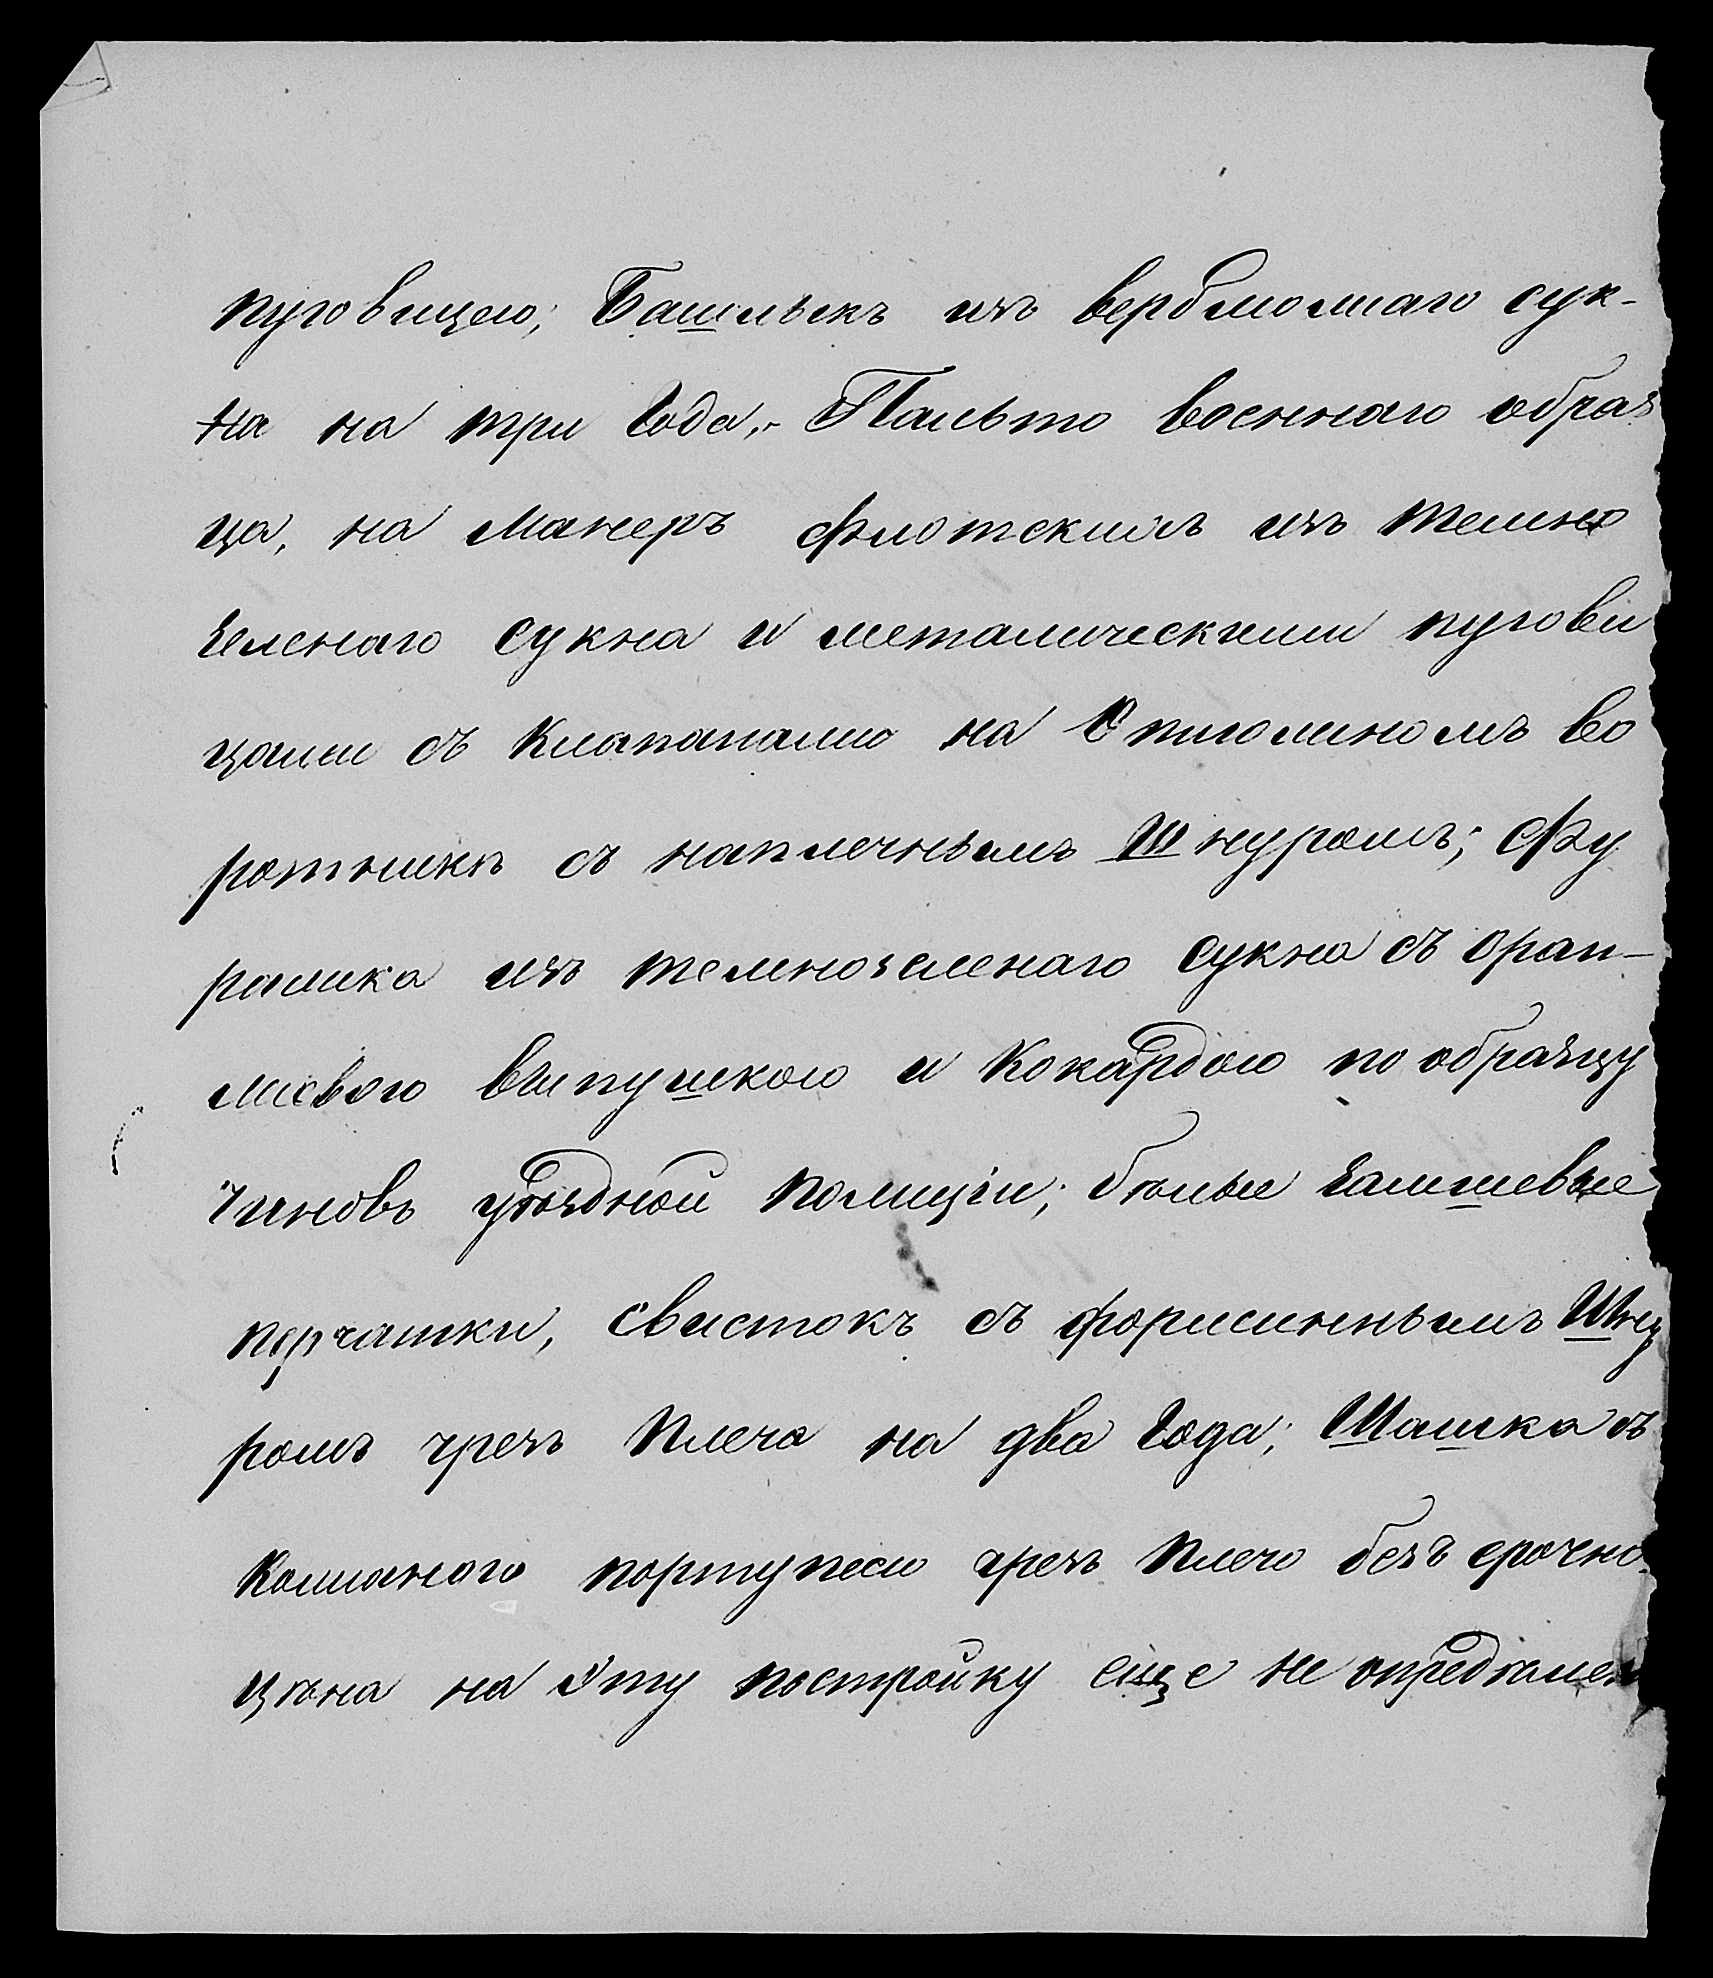 пуговицею; Башлыкъ изъ верблюжаго сук-
на на три года,- Пальто военнаго образ
ца, на манеръ флотскихъ изъ темно
зеленаго сукна и металическими пугови
цами съ клапанами на отложномъ во
ротникѣ съ наплечнымъ шнуромъ; фу
ражка изъ темнозеленаго сукна съ оран-
жевою выпушкою и кокардою по образцу
чиновъ уѣздной полиціи; бѣлые замшевые
перчатки, свистокъ съ форменнымъ шну
ромъ чрезъ плеча на два года; Шашка съ
кожаного портупеею чрезъ плечо безъ срочно.
цѣна на эту постройку еще не опредѣлен